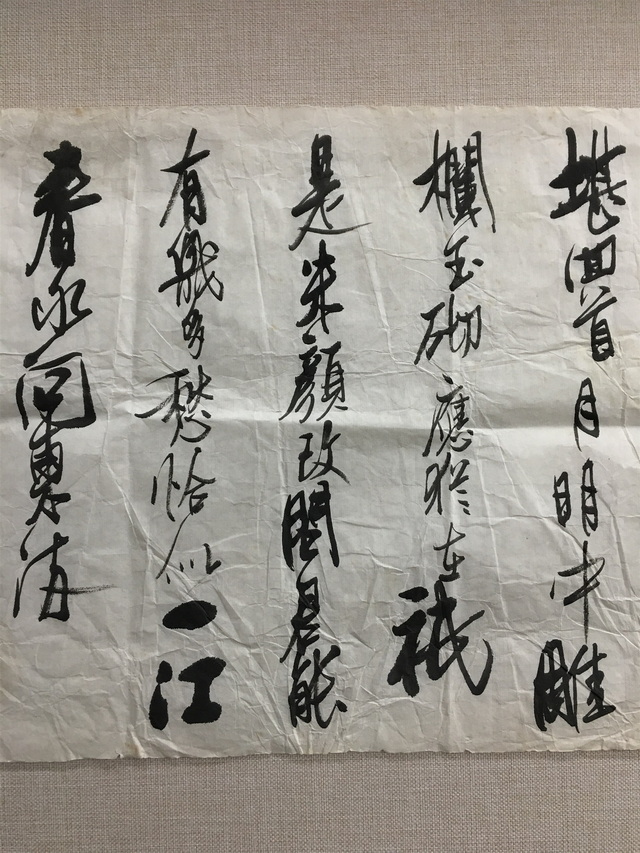 堪回首月明中雕
欄玉砌應猶在祇
是朱顔改問君能
有幾多愁恰似一江
春水向東流